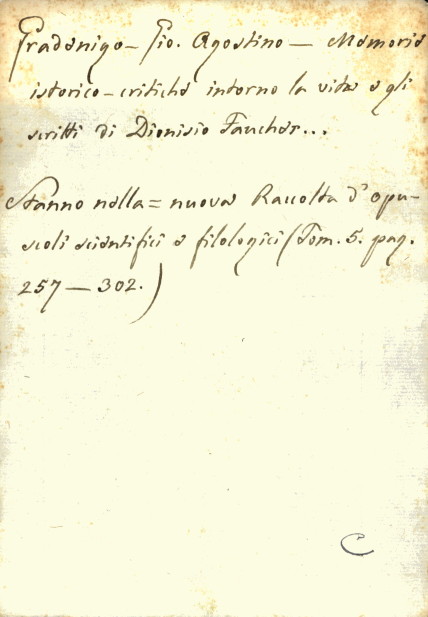 Gradenigo - Gio. Agostino - Memorie
istorico-critiche intorno la vita e gli
scritti di Dionisio Faucher...
Stanno nella = nuova Raccolta d'opu-
scoli scientifici e filologici (Tom. 5. pag.
257 - 302.)
C